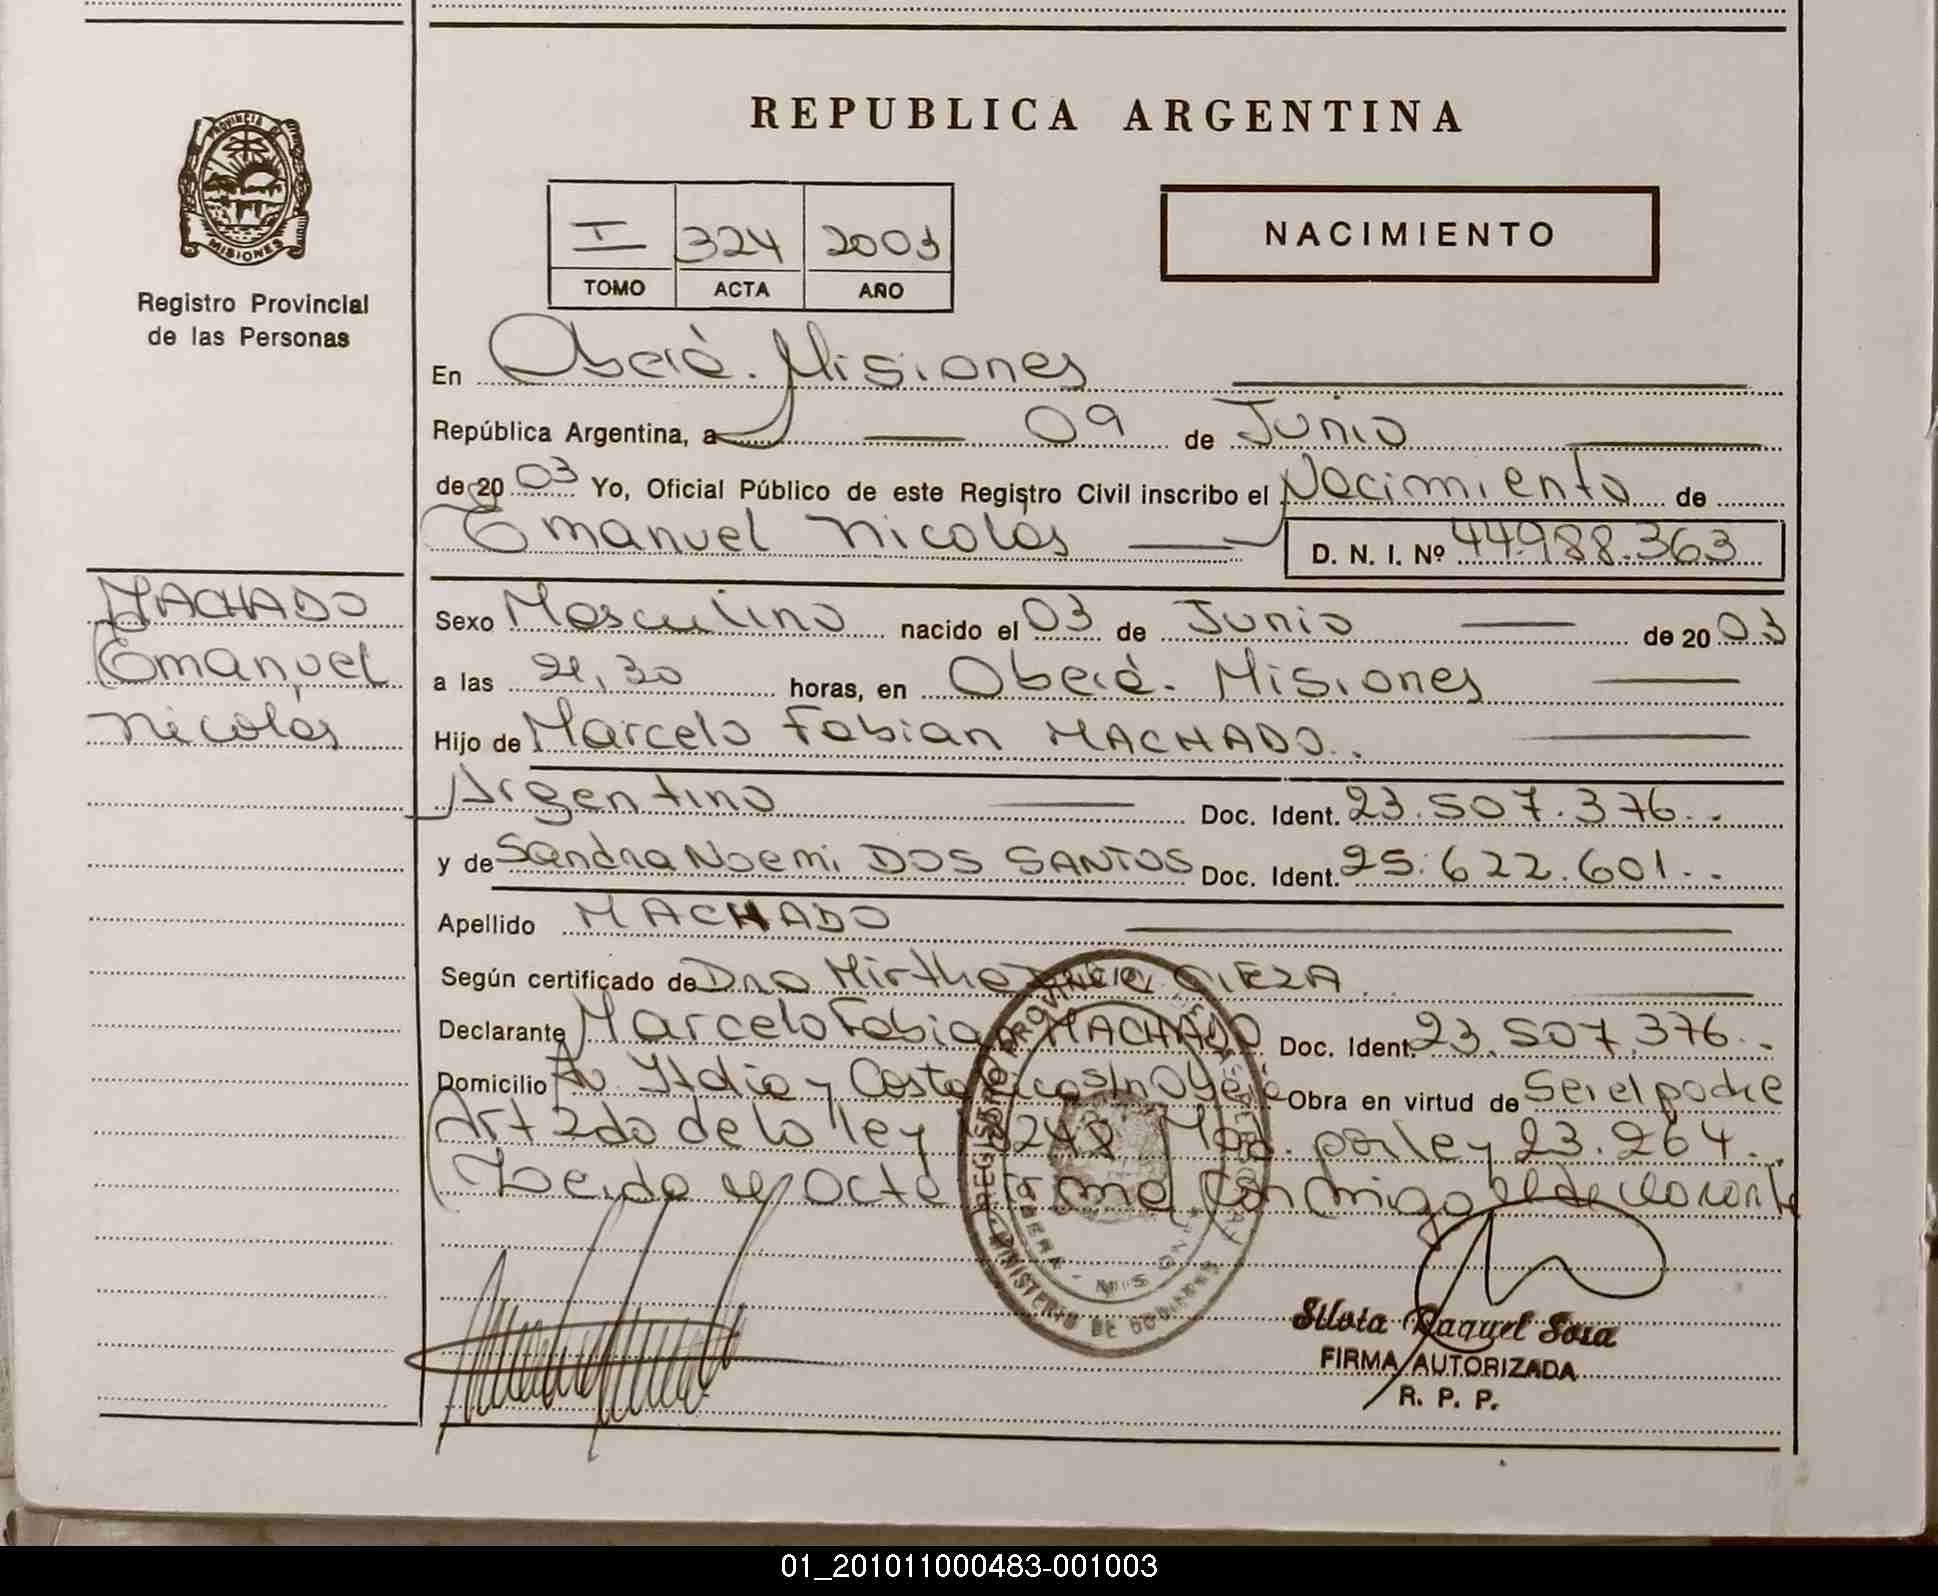 REPUBLICA ARGENTINA
PROVINCIA DE
MISIONES
Registro Provincial
de las Personas
I 324 2003
TOMO ACTA AÑO
NACIMIENTO
En Oberá. Misiones
República Argentina, a 09 de Junio
de 20 03 Yo, Oficial Público de este Registro Civil inscribo el Nacimiento de
Emanuel Nicolás D. N. I. Nº 44.988.363
MACHADO
Emanuel
Nicolás
Sexo Masculino nacido el 03 de Junio de 20 03
a las 21,30 horas, en Oberá. Misiones
Hijo de Marcelo Fabian MACHADO..
Argentino Doc. Ident. 23.507.376..
y de Sandra Noemi DOS SANTOS Doc. Ident. 25.622.601..
Apellido MACHADO
Según certificado de Dra Mirtha CIEZA
Declarante Marcelo Fabian MACHADO Doc. Ident. 23.507.376..
Domicilio Av. Italia y Costa Rica s/n Oberá Obra en virtud de Ser el padre
Art 2do de la ley 18248 Mod. por ley 23.264..
Leida el acta firma conmigo el declarante
REGISTRO PROVINCIAL DE LAS PERSONAS
MINISTERIO DE GOBIERNO
OBERA - MISIONES
Silvia Raquel Sosa
FIRMA AUTORIZADA
R. P. P.
01_201011000483-001003